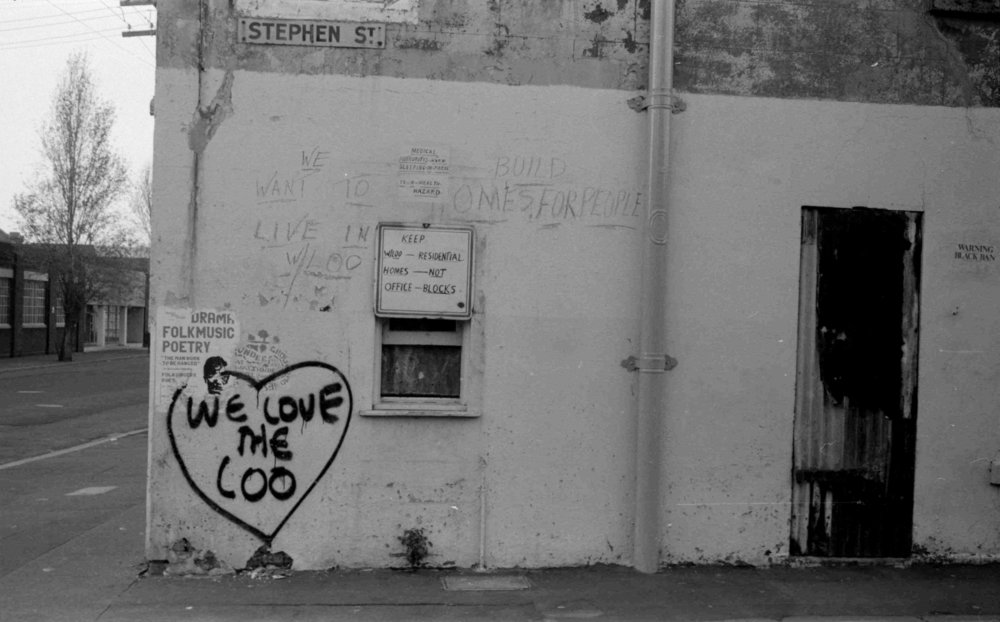 STEPHEN ST.
WE
WANT TO
LIVE IN
W/LOO
MEDICAL
SLEEPING IN THESE
IS A HEALTH
HAZARD
BUILD
OMES FOR PEOPLE
KEEP
W/LOO — RESIDENTIAL
HOMES — NOT
OFFICE — BLOCKS
WARNING
BLACK BAN
DRAMA
FOLKMUSIC
POETRY
WE LOVE
THE
LOO